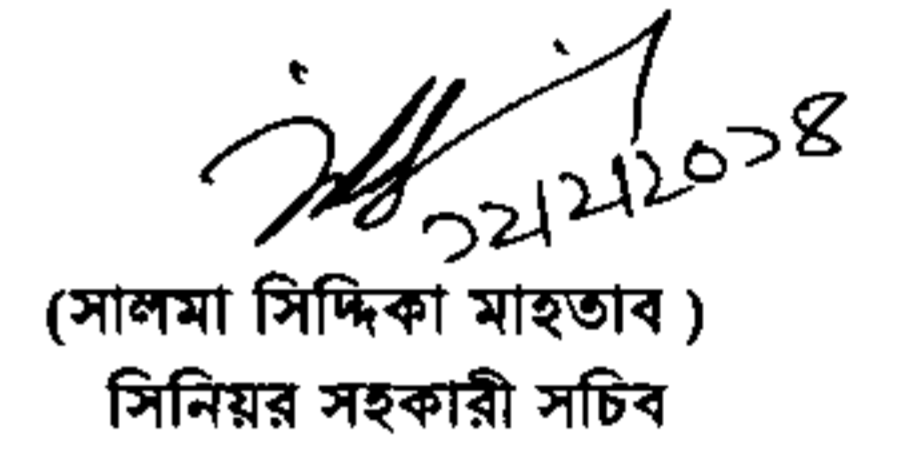 ১২/২/২০১৪
(সালমা সিদ্দিকা মাহতাব )
সিনিয়র সহকারী সচিব